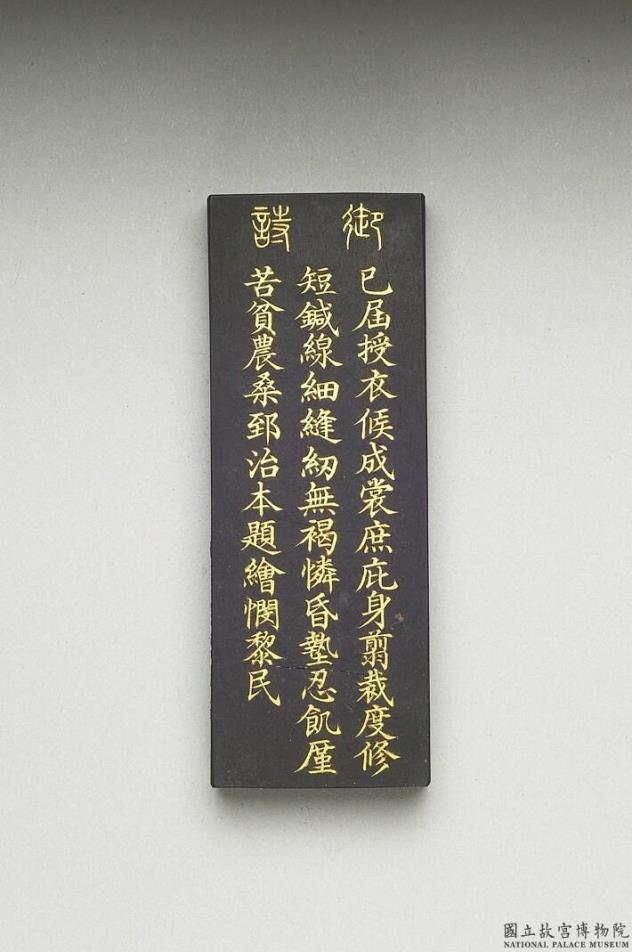 御詩
已屆授衣候成裳庶庇身翦裁度修
短鍼線細縫紉無褐憐昏墊忍飢廑
苦貧農桑郅治本題繪憫黎民
國立故宮博物院
NATIONAL PALACE MUSEUM